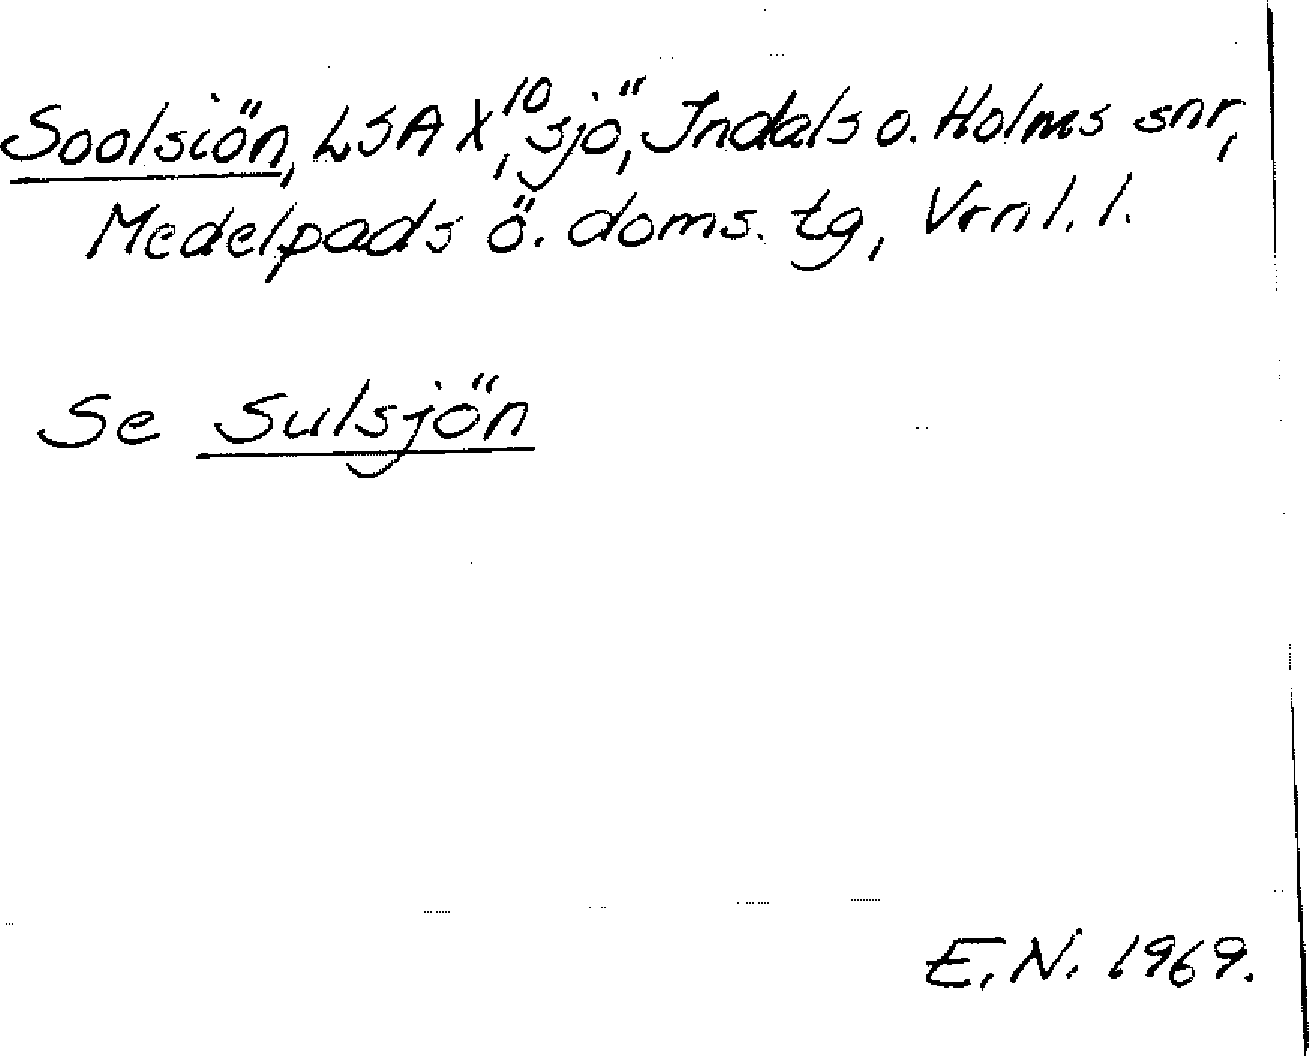 Soolsiön, LSA X¹⁰, sjö, Indals o. Holms snr,
Medelpads ö. doms. tg, Vrnl. l.
Se Sulsjön
E.N. 1969.